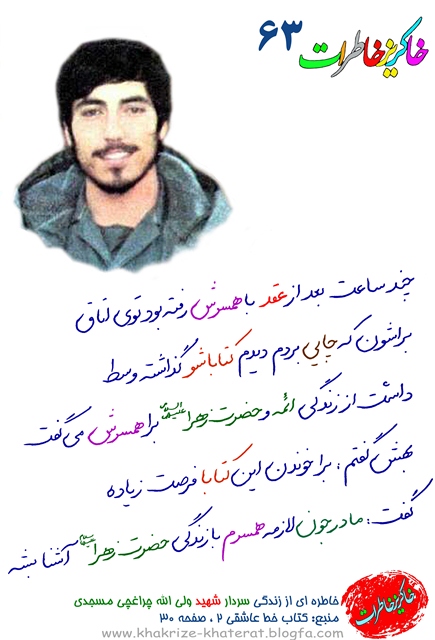 خاکریز خاطرات ۶۳
چند ساعت بعد از عقد با همسرش رفته بود توی اتاق
براشون که چایی بردم دیدم کتاباشو گذاشته وسط
داشت از زندگی ائمه و حضرت زهرا علیهاالسلام برا همسرش می گفت
بهش گفتم : برا خوندن این کتابا فرصت زیاده
گفت : مادر جون لازمه همسرم با زندگی حضرت زهرا علیهاالسلام آشنا بشه
خاطره ای از زندگی سردار شهید ولی الله چراغچی مسجدی
منبع: کتاب خط عاشقی ۲ ، صفحه ۳۰
خاکریز خاطرات
www.khakrize-khaterat.blogfa.com